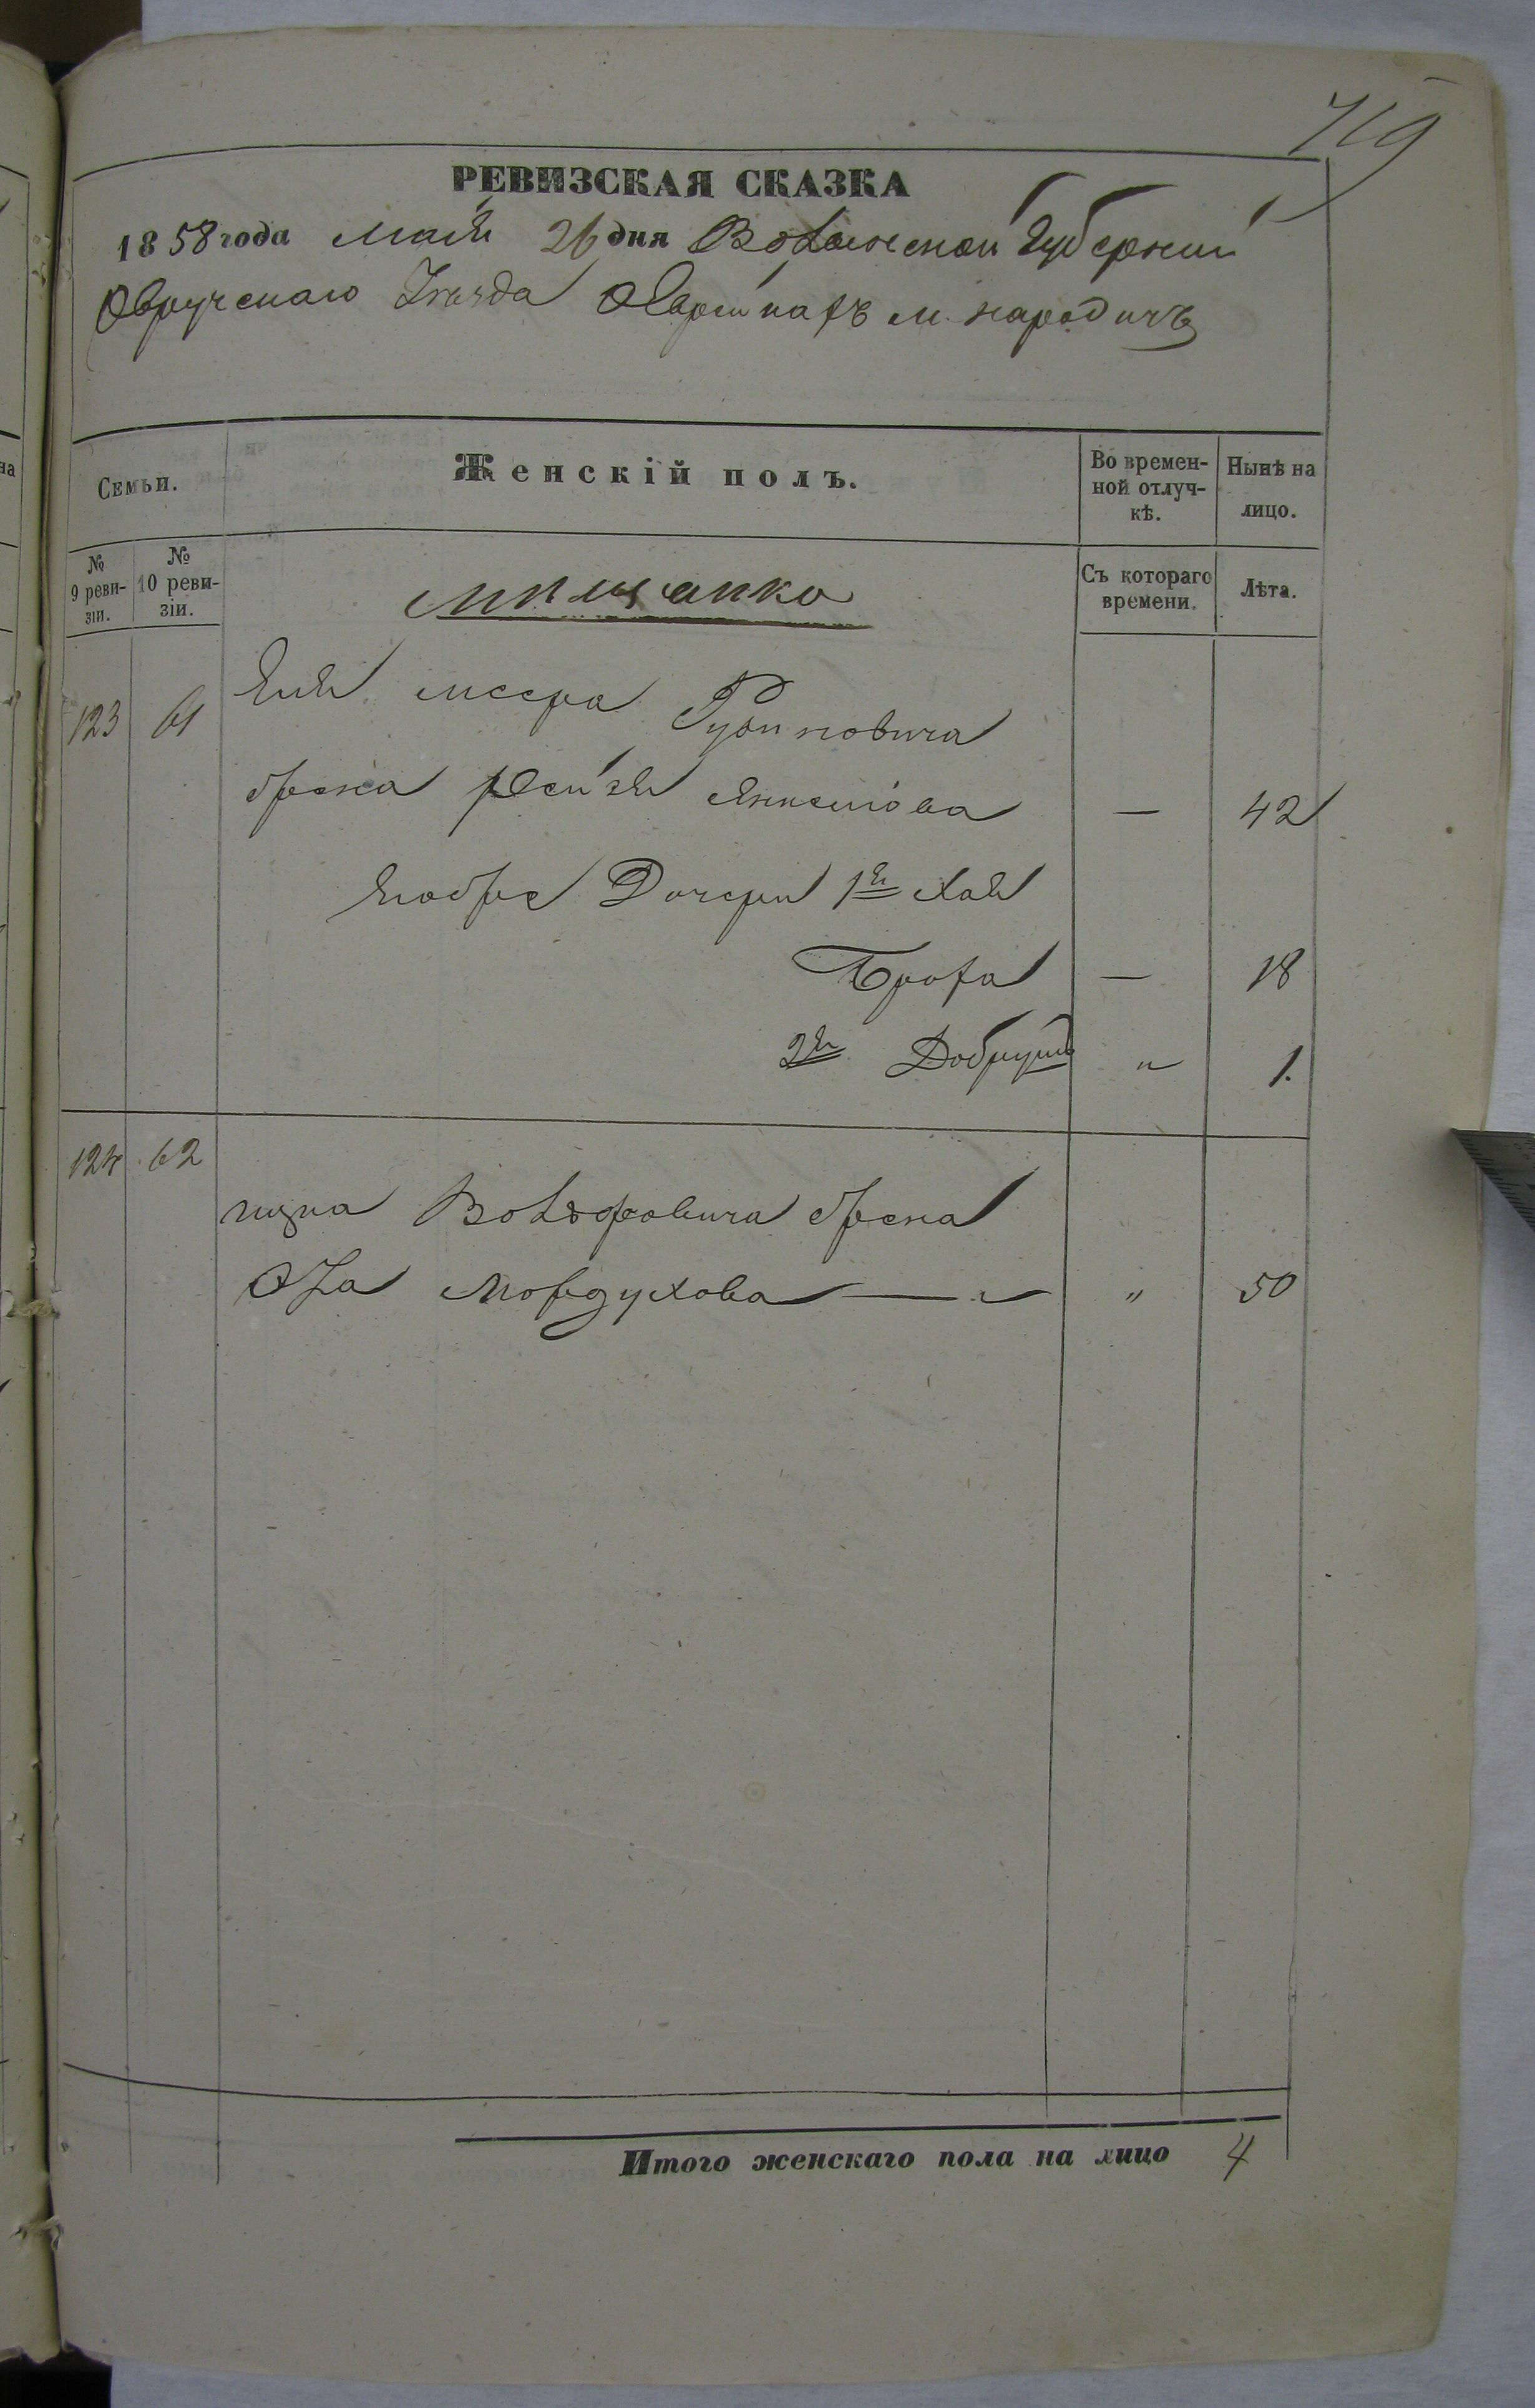 719
РЕВИЗСКАЯ СКАЗКА
1858 года мая 26 дня Волынской Губернии
Овручскаго Уезда Евреи м. Народичъ
Семьи.
Женскій полъ.
Во времен-
ной отлуч-
кѣ.
Ныпѣ на
лицо.
№
9 реви-
зіи.
№
10 реви-
зіи.
Съ котораго
времени.
Лѣта.
123 61
Рувиновича
жена — 42
Его же Дочери 1я Хая
Броха — 18
2я Добрушъ " 1.
124 62
Вольфовича жена
Мордухова — " 50
Итого женскаго пола на лицо 4